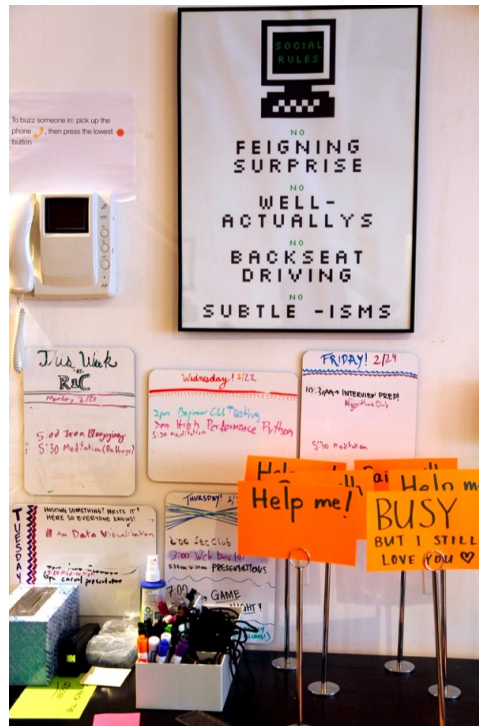 To buzz someone in: pick up the
phone , then press the lowest
button
SOCIAL
RULES
NO
FEIGNING
SURPRISE
NO
WELL-
ACTUALLYS
NO
BACKSEAT
DRIVING
NO
SUBTLE -ISMS
This Week
RBC
Monday, 2/20
5:00 Iron Blogging
5:30 Meditation
Wednesday! 2/22
2pm Beginner CLI Testing
3pm High Performance Python
5:30 meditation
FRIDAY! 2/24
INTERVIEW PREP!
5:30 meditation
TUESDAY
HOSTING SOMETHING? WRITE IT
HERE SO EVERYONE KNOWS!
11 am Data Visualization
THURSDAY!
Sec Club
Web Dev
PRESENTATIONS
7:00 GAME
NIGHT!
Help me!
Help me
BUSY
BUT I STILL
LOVE YOU ♡